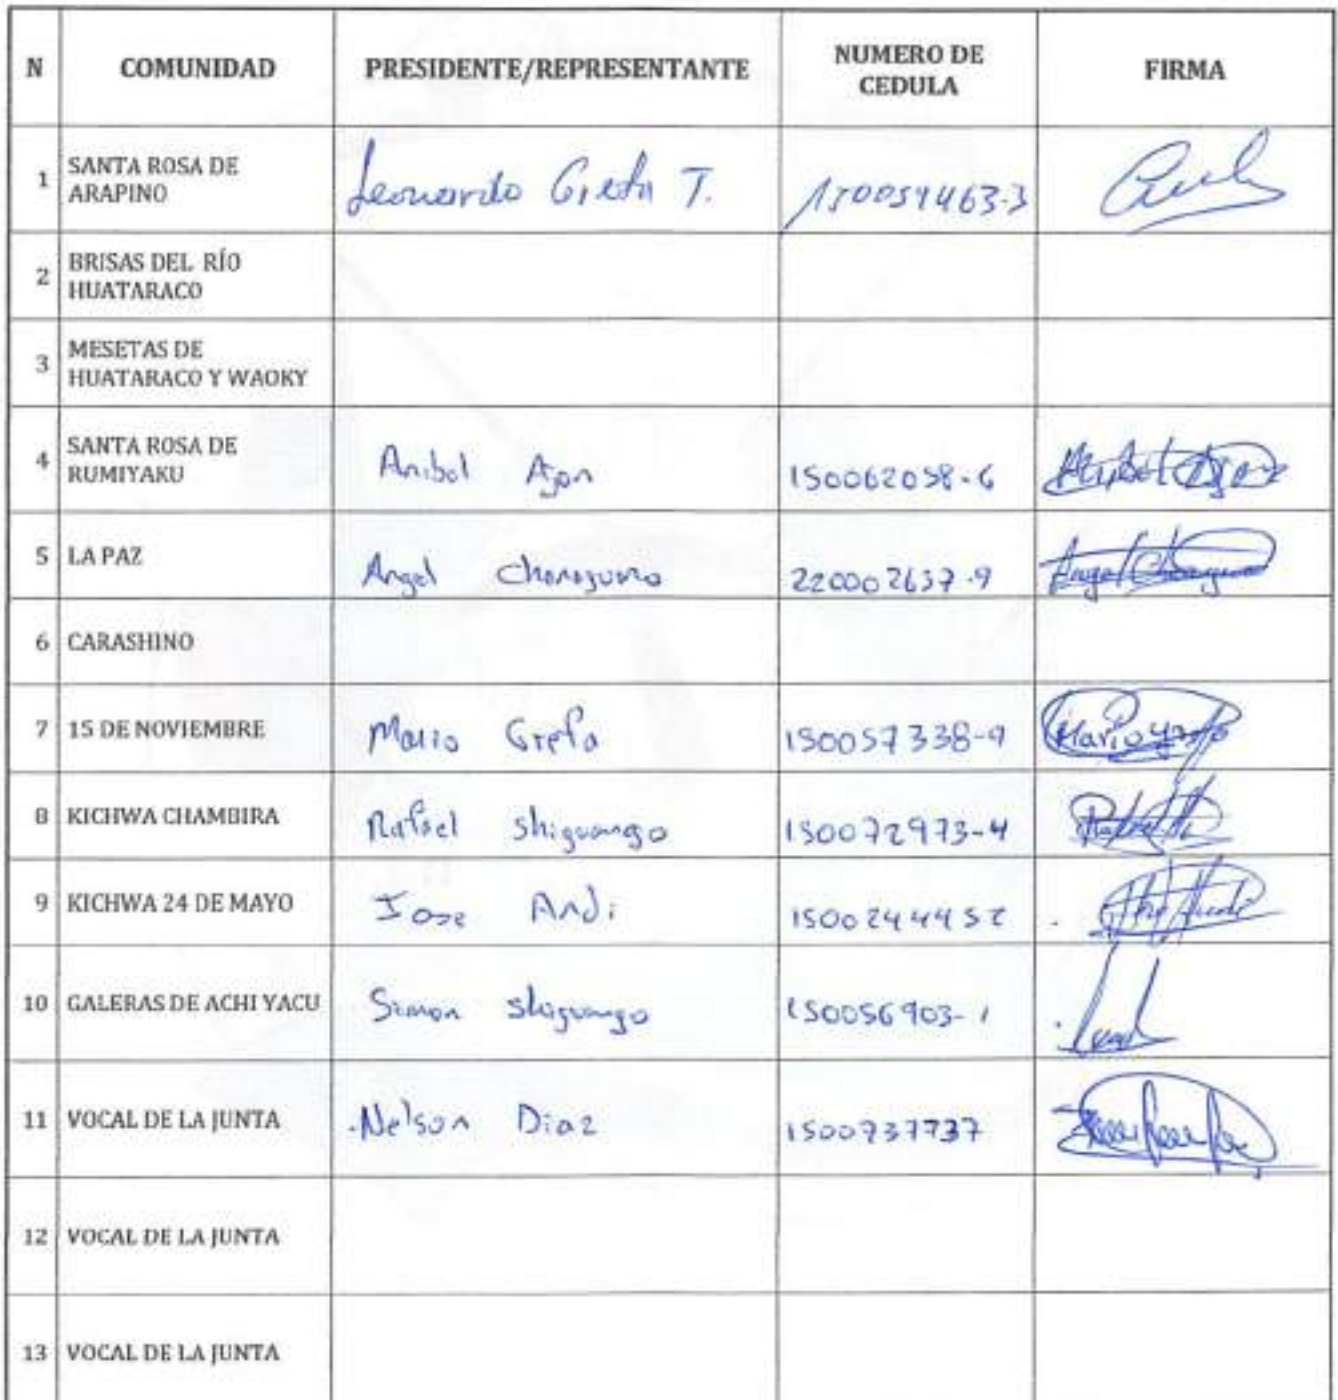 N COMUNIDAD PRESIDENTE/REPRESENTANTE NUMERO DE CEDULA FIRMA
1 SANTA ROSA DE ARAPINO Leonardo Grefa T. 150054463-3
2 BRISAS DEL RÍO HUATARACO
3 MESETAS DE HUATARACO Y WAOKY
4 SANTA ROSA DE RUMIYAKU Anibal Ajon 150062058-6
5 LA PAZ Angel 220002637-9
6 CARASHINO
7 15 DE NOVIEMBRE Mario Grefa 150057338-9
8 KICHWA CHAMBIRA Rafael Shiguango 150072973-4
9 KICHWA 24 DE MAYO Jose Andi 1500244452
10 GALERAS DE ACHI YACU Simon Shiguango 150056903-1
11 VOCAL DE LA JUNTA Nelson Diaz 1500737737
12 VOCAL DE LA JUNTA
13 VOCAL DE LA JUNTA